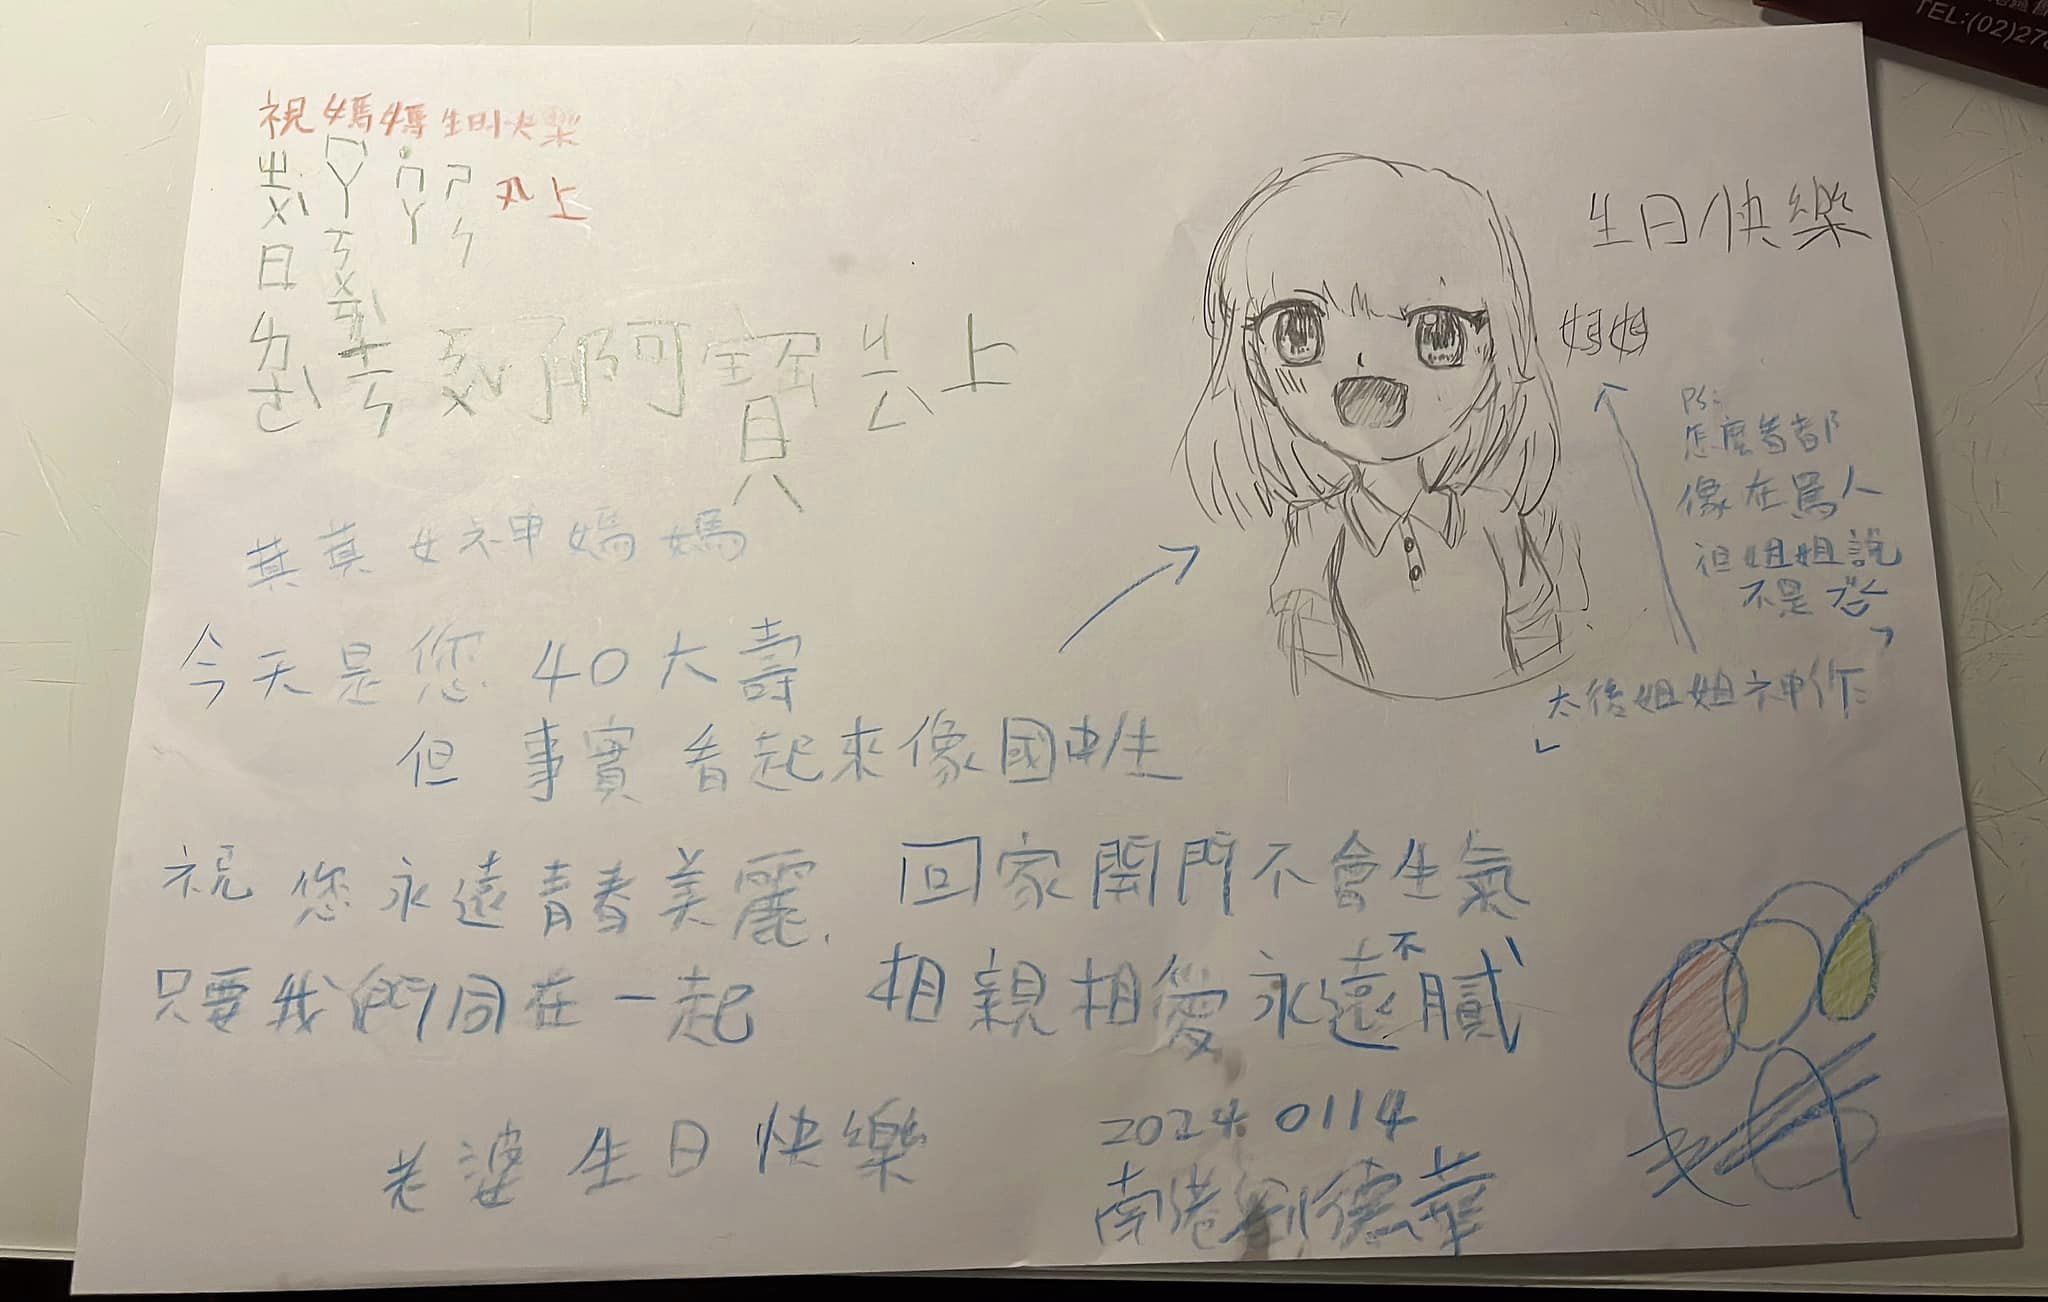 祝媽媽生日快樂
上
啊寶
上
真真女神媽媽
今天是您 40大壽
但 事實看起來像國中生
祝 您永遠青春美麗
只要我們同在一起
回家開門不會生氣
相親相愛永遠不膩
老婆 生日快樂
2024 0114
南港劉德華
生日快樂
姐姐
PS:
怎麼看都
像在罵人
但姐姐說
不是
太后姐姐神作
TEL:(02)278